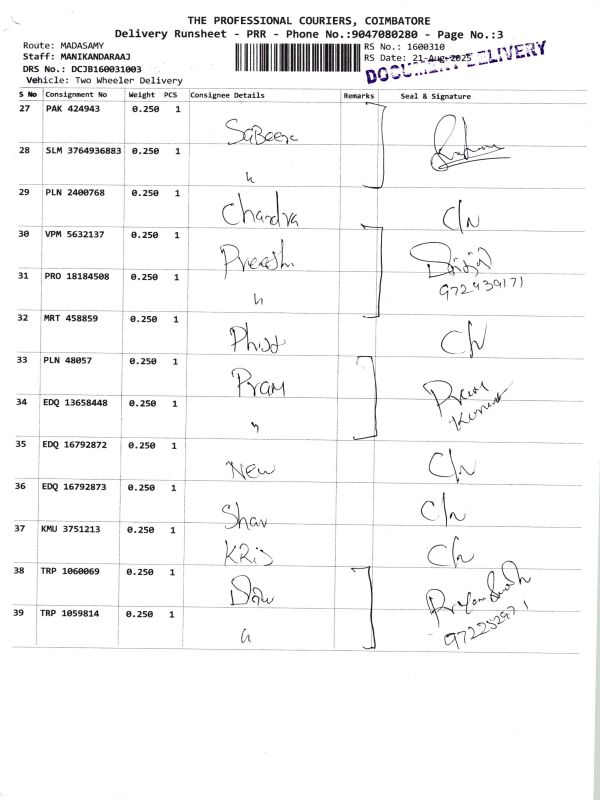 THE PROFESSIONAL COURIERS, COIMBATORE
Delivery Runsheet - PRR - Phone No.:9047080280 - Page No.:3
Route: MADASAMY
Staff: MANIKANDARAAJ
DRS No.: DCJB160031003
Vehicle: Two Wheeler Delivery
RS No.: 1600310
RS Date: 21-Aug-2025
DOCUMENT DELIVERY
S No Consignment No Weight PCS Consignee Details Remarks Seal & Signature
27 PAK 424943 0.250 1
Sabeera
28 SLM 3764936883 0.250 1
"
29 PLN 2400768 0.250 1
Chandra C/N
30 VPM 5632137 0.250 1
Preeshi
31 PRO 18184508 0.250 1
" 972439171
32 MRT 458859 0.250 1
C/N
33 PLN 48057 0.250 1
Pram Prem
34 EDQ 13658448 0.250 1
" Kumar
35 EDQ 16792872 0.250 1
New C/N
36 EDQ 16792873 0.250 1
Shav C/N
37 KMU 3751213 0.250 1
KRis C/N
38 TRP 1060069 0.250 1
39 TRP 1059814 0.250 1
"